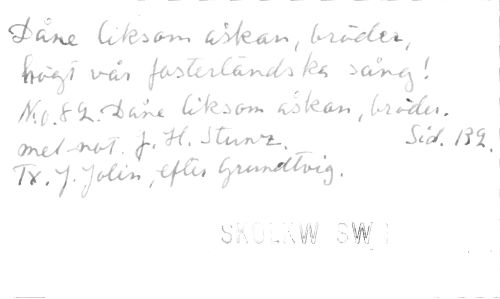 Dåne liksom åskan, bröder,
högt vår fosterländska sång!
N:o 82. Dåne liksom åskan, bröder.
mel-not. J. H. Stunz. Sid. 132.
Tx. J. Jolin, efter Grundtvig.